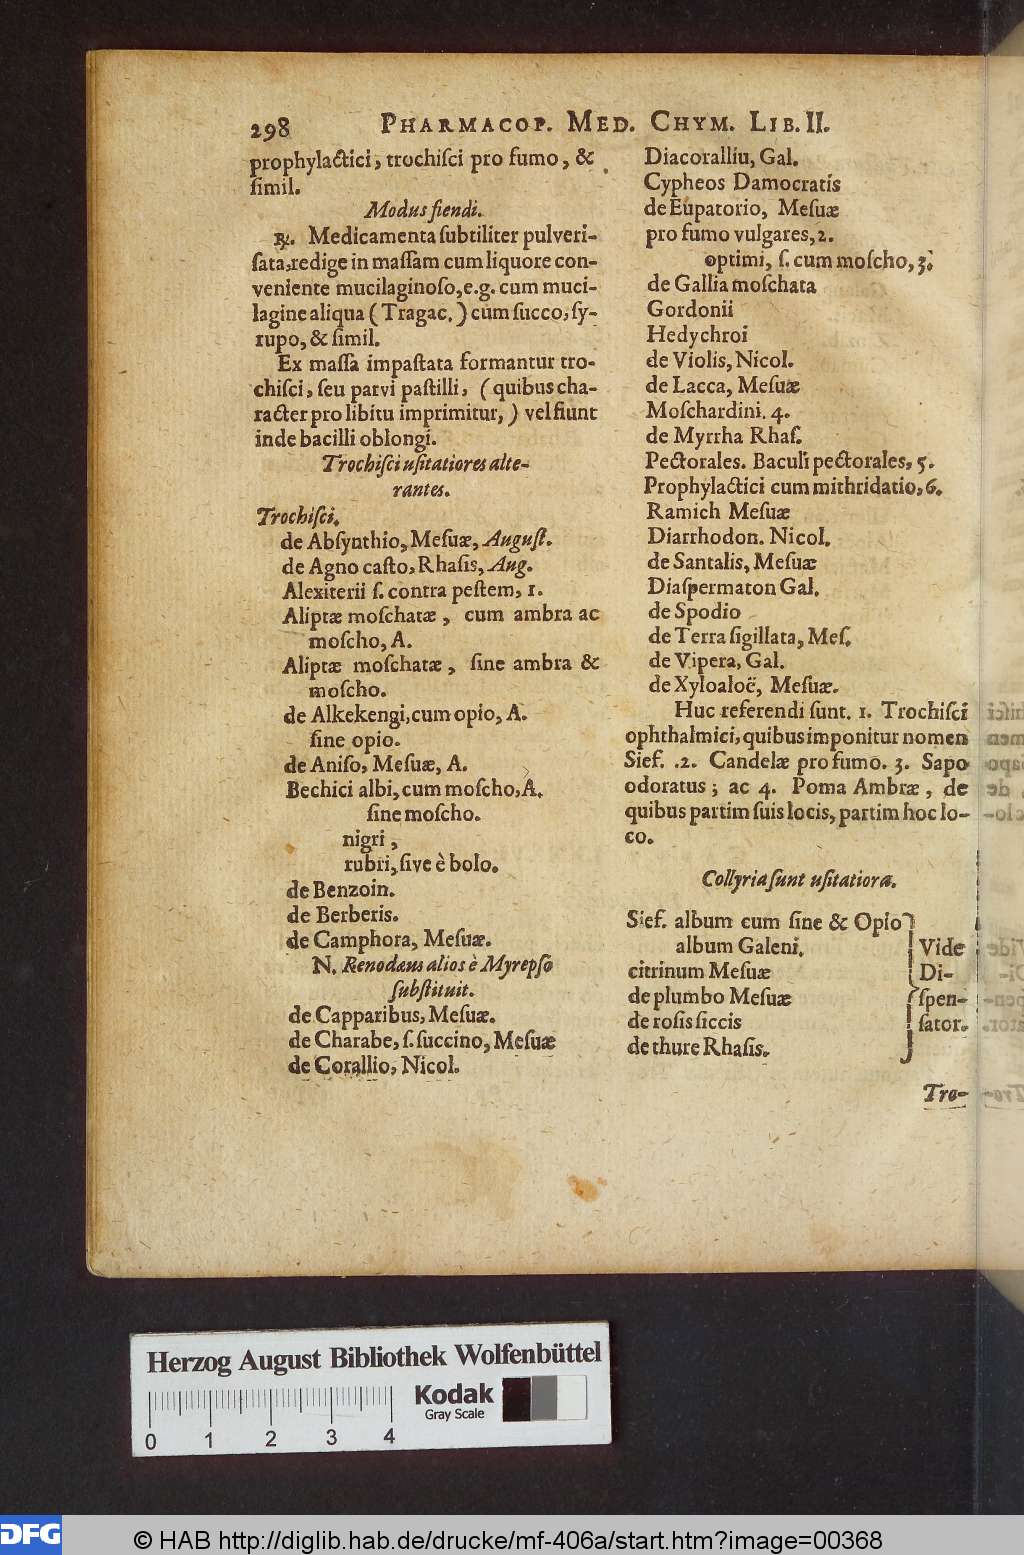 298 PHARMACOP. MED. CHYM. LIB. II.
prophylactici, trochiſci pro fumo, &
ſimil.
Modus fiendi.
℞. Medicamenta ſubtiliter pulveri-
ſata, redige in maſſam cum liquore con-
veniente mucilaginoſo, e.g. cum muci-
lagine aliqua (Tragac.) cum ſucco, ſy-
rupo, & ſimil.
Ex maſſa impaſtata formantur tro-
chiſci, ſeu parvi paſtilli, (quibus cha-
racter pro libitu imprimitur,) vel fiunt
inde bacilli oblongi.
Trochiſci uſitatiores alte-
rantes.
Trochiſci.
de Abſynthio, Meſuæ, Auguſt.
de Agno caſto, Rhaſis, Aug.
Alexiterii ſ. contra peſtem, 1.
Aliptæ moſchatæ, cum ambra ac
moſcho, A.
Aliptæ moſchatæ, ſine ambra &
moſcho.
de Alkekengi, cum opio, A.
ſine opio.
de Aniſo, Meſuæ, A.
Bechici albi, cum moſcho, A.
ſine moſcho.
nigri,
rubri, ſive è bolo.
de Benzoin.
de Berberis.
de Camphora, Meſuæ.
N. Renodæus alios è Myrepſo
ſubſtituit.
de Capparibus, Meſuæ.
de Charabe, ſ. ſuccino, Meſuæ
de Corallio, Nicol.
Diacoralliu, Gal.
Cypheos Damocratis
de Eupatorio, Meſuæ
pro fumo vulgares, 2.
optimi, ſ. cum moſcho, 3.
de Gallia moſchata
Gordonii
Hedychroi
de Violis, Nicol.
de Lacca, Meſuæ
Moſchardini. 4.
de Myrrha Rhaſ.
Pectorales. Baculi pectorales, 5.
Prophylactici cum mithridatio, 6.
Ramich Meſuæ
Diarrhodon. Nicol.
de Santalis, Meſuæ
Diaſpermaton Gal.
de Spodio
de Terra ſigillata, Meſ.
de Vipera, Gal.
de Xyloaloë, Meſuæ.
Huc referendi ſunt. 1. Trochiſci
ophthalmici, quibus imponitur nomen
Sief. .2. Candelæ pro fumo. 3. Sapo
odoratus; ac 4. Poma Ambræ, de
quibus partim ſuis locis, partim hoc lo-
co.
Collyria ſunt uſitatiora.
Sief. album cum ſine & Opio
album Galeni. Vide
citrinum Meſuæ Di-
de plumbo Meſuæ ſpen-
de roſis ſiccis ſator.
de thure Rhaſis.
Tro-
Herzog August Bibliothek Wolfenbüttel
Kodak
Gray Scale
0 1 2 3 4
DFG
© HAB http://diglib.hab.de/drucke/mf-406a/start.htm?image=00368